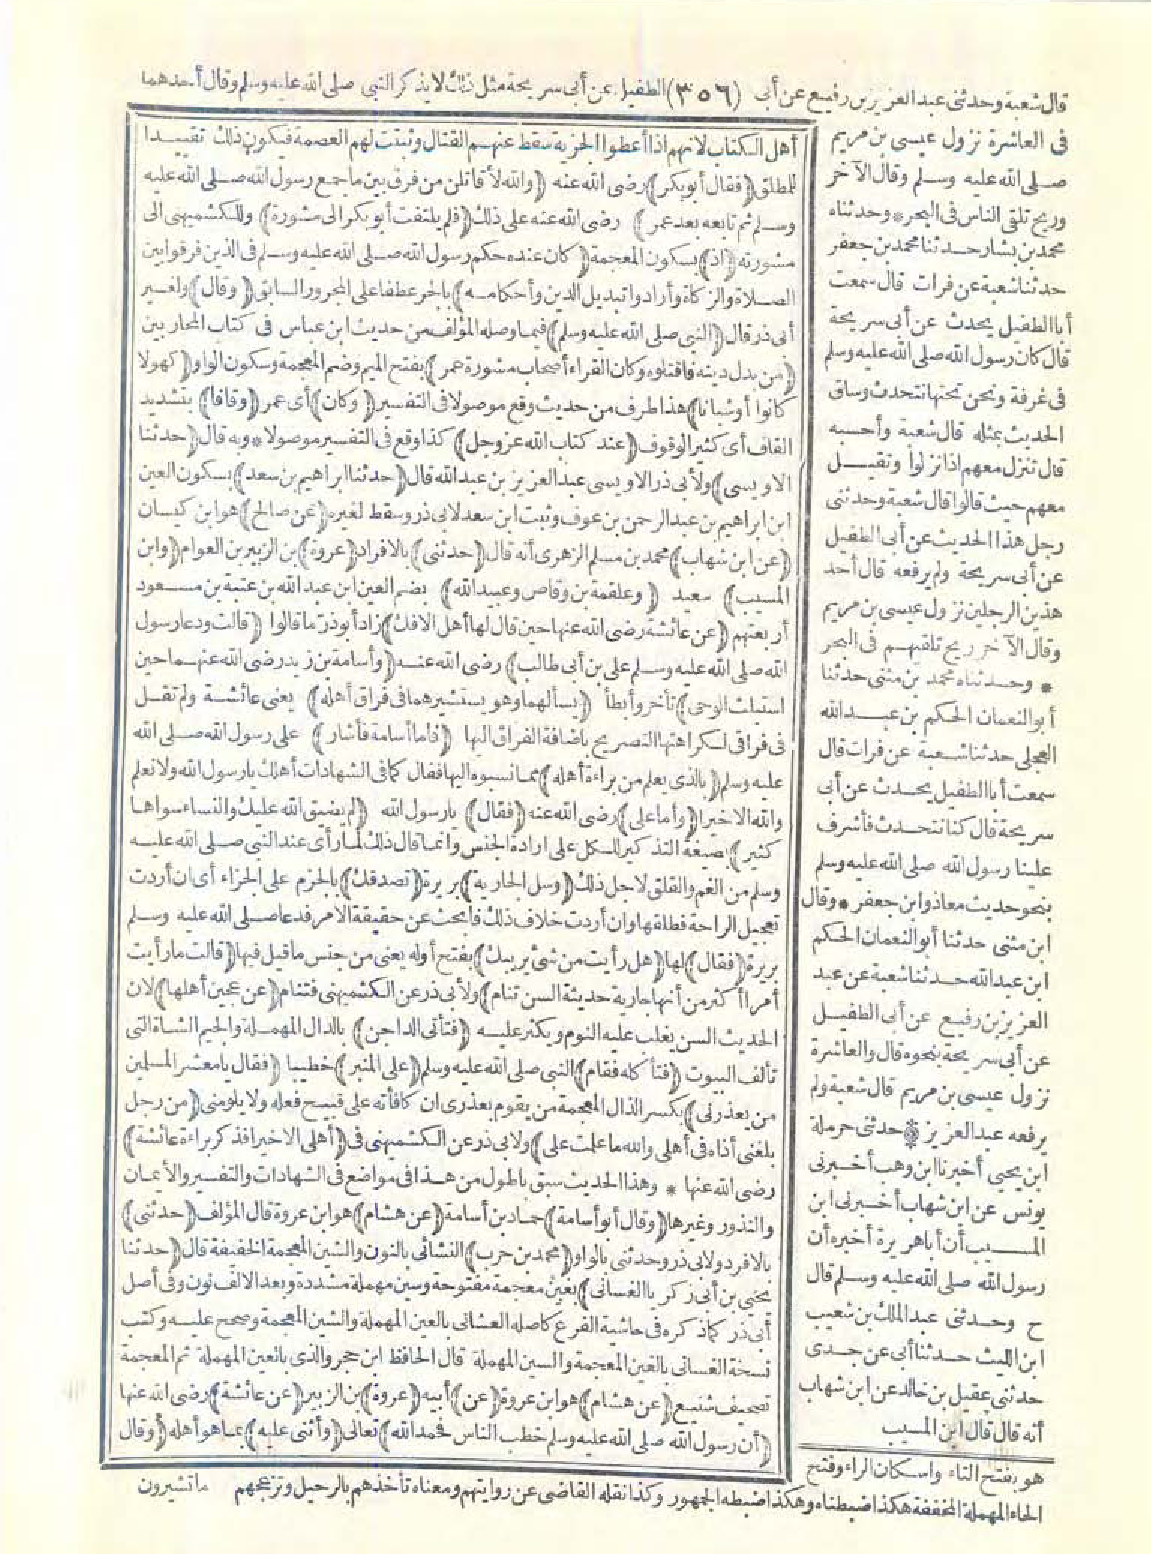 قال شعبة وحدثنى عبد العزيز بن رفيع عن أبى (٣٥٦) الطفيل عن أبى سريحة مثل ذلك لا يذكر النبى صلى الله عليه وسلم وقال أحدهما
فى العاشرة نزول عيسى بن مريم
صلى الله عليه وسلم وقال الآخر
وريح تلقى الناس فى البحر * وحدثناه
محمد بن بشار حدثنا محمد بن جعفر
حدثنا شعبة عن فرات قال سمعت
أبا الطفيل يحدث عن أبى سريحة
قال كان رسول الله صلى الله عليه وسلم
فى غرفة ونحن تحتها نتحدث وساق
الحديث بمثله قال شعبة وأحسبه
قال تنزل معهم اذا نزلوا وتقيل
معهم حيث قالوا قال شعبة وحدثنى
رجل هذا الحديث عن أبى الطفيل
عن أبى سريحة ولم يرفعه قال أحد
هذين الرجلين نزول عيسى بن مريم
وقال الآخر ريح تلقيهم فى البحر
* وحدثناه محمد بن مثنى حدثنا
أبو النعمان الحكم بن عبد الله
العجلى حدثنا شعبة عن فرات قال
سمعت أبا الطفيل يحدث عن أبى
سريحة قال كنا نتحدث فأشرف
علينا رسول الله صلى الله عليه وسلم
بنحو حديث معاذ وابن جعفر * وقال
ابن مثنى حدثنا أبو النعمان الحكم
ابن عبد الله حدثنا شعبة عن عبد
العزيز بن رفيع عن أبى الطفيل
عن أبى سريحة بنحوه قال والعاشرة
نزول عيسى بن مريم قال شعبة ولم
يرفعه عبد العزيز * حدثنى حرملة
ابن يحيى أخبرنا ابن وهب أخبرنى
يونس عن ابن شهاب أخبرنى ابن
المسيب أن أبا هريرة أخبره أن
رسول الله صلى الله عليه وسلم قال
ح وحدثنى عبد الملك بن شعيب
ابن الليث حدثنا أبى عن جدى
حدثنى عقيل بن خالد عن ابن شهاب
أنه قال قال ابن المسيب
أهل الكتاب لانهم اذا أعطوا الجزية سقط عنهم القتال وثبتت لهم العصمة فيكون ذلك تقييدا
للمطلق (فقال أبو بكر) رضى الله عنه (والله لأقاتلن من فرق بين ما جمع رسول الله صلى الله عليه
وسلم ثم تابعه بعد عمر) رضى الله عنه على ذلك (فلم يلتفت أبو بكر الى مشورة) وللكشميهنى الى
مشورته (اذ) بسكون المعجمة (كان عنده حكم رسول الله صلى الله عليه وسلم فى الذين فرقوا بين
الصلاة والزكاة وأرادوا تبديل الدين وأحكامه) بالجر عطفا على المجرور السابق (وقال) ولغير
أبى ذر قال (النبى صلى الله عليه وسلم) فيما وصله المؤلف من حديث ابن عباس فى كتاب المحاربين
(من بدل دينه فاقتلوه وكان القراء أصحاب مشورة عمر) بفتح الميم وضم المعجمة وسكون الواو (كهولا
كانوا أو شبانا) هذا طرف من حديث وقع موصولا فى التفسير (وكان) أى عمر (وقافا) بتشديد
القاف أى كثير الوقوف (عند كتاب الله عز وجل) كذا وقع فى التفسير موصولا * وبه قال (حدثنا
الاويسى) ولأبى ذر الاويسى عبد العزيز بن عبد الله قال (حدثنا ابراهيم بن سعد) بسكون العين
ابن ابراهيم بن عبد الرحمن بن عوف وثبت ابن سعد لابى ذر وسقط لغيره (عن صالح) هو ابن كيسان
(عن ابن شهاب) محمد بن مسلم الزهرى أنه قال (حدثنى) بالافراد (عروة) بن الزبير بن العوام (وابن
المسيب) سعيد (وعلقمة بن وقاص وعبيد الله) بضم العين ابن عبد الله بن عتبة بن مسعود
أربعتهم (عن عائشة رضى الله عنها حين قال لها أهل الافك) زاد أبو ذر ما قالوا (قالت ودعا رسول
الله صلى الله عليه وسلم على بن أبى طالب) رضى الله عنه (وأسامة بن زيد رضى الله عنهما حين
استلبث الوحى) تأخر وأبطأ (يسألهما وهو يستشيرهما فى فراق أهله) يعنى عائشة ولم تقل
فى فراقى لكراهتها التصريح باضافة الفراق اليها (فأما أسامة فأشار) على رسول الله صلى الله
عليه وسلم (بالذى يعلم من براءة أهله) مما نسبوه اليها فقال كما فى الشهادات أهلك يا رسول الله ولا نعلم
والله الاخيرا (وأما على) رضى الله عنه (فقال) يا رسول الله (لم يضيق الله عليك والنساء سواها
كثير) بصيغة التذكير للكل على ارادة الجنس وانما قال ذلك لما رأى عند النبى صلى الله عليه
وسلم من الغم والقلق لاجل ذلك (وسل الجارية) بريرة (تصدقك) بالجزم على الجزاء أى ان أردت
تعجيل الراحة فطلقها وان أردت خلاف ذلك فابحث عن حقيقة الامر فدعا صلى الله عليه وسلم
بريرة (فقال) لها (هل رأيت من شئ يريبك) بفتح أوله يعنى من جنس ما قيل فيها (قالت ما رأيت
أمرا أكثر من أنها جارية حديثة السن تنام) ولأبى ذر عن الكشميهنى فتنام (عن عجين أهلها) لان
الحديث السن يغلب عليه النوم ويكثر عليه (فتأتى الداجن) بالدال المهملة والجيم الشاة التى
تألف البيوت (فتأكله فقام) النبى صلى الله عليه وسلم (على المنبر) خطيبا (فقال يا معشر المسلمين
من يعذرنى) بكسر الذال المعجمة من يقوم بعذرى ان كافأته على قبيح فعله ولا يلومنى (من رجل
بلغنى أذاه فى أهلى والله ما علمت على) ولابى ذر عن الكشميهنى فى (أهلى الاخيرا فذكر براءة عائشة)
رضى الله عنها * وهذا الحديث سبق بأطول من هذا فى مواضع فى الشهادات والتفسير والأيمان
والنذور وغيرها (وقال أبو أسامة) حماد بن أسامة (عن هشام) هو ابن عروة قال المؤلف (حدثنى)
بالافرد ولابى ذر وحدثنى بالواو (محمد بن حرب) النشائى بالنون والشين المعجمة الخفيفة قال (حدثنا
يحيى بن أبى زكريا الغسانى) بغين معجمة مفتوحة وسين مهملة مشددة وبعد الالف نون وفى أصل
أبى ذر كما ذكره فى حاشية الفرع كاصله العشانى بالعين المهملة والشين المعجمة وصحح عليه وكتب
نسخة الغسانى بالغين المعجمة والسين المهملة قال الحافظ ابن حجر والذى بالعين المهملة ثم المعجمة
تصحيف شنيع (عن هشام) هو ابن عروة (عن) أبيه (عروة) بن الزبير (عن عائشة) رضى الله عنها
(أن رسول الله صلى الله عليه وسلم خطب الناس فحمد الله) تعالى (وأثنى عليه) بما هو أهله (وقال
هو بفتح التاء واسكان الراء وفتح
الحاء المهملة المخففة هكذا ضبطناه وهكذا ضبطه الجمهور وكذا نقله القاضى عن روايتهم ومعناه تأخذهم بالرحيل وتزعجهم ما تشيرون